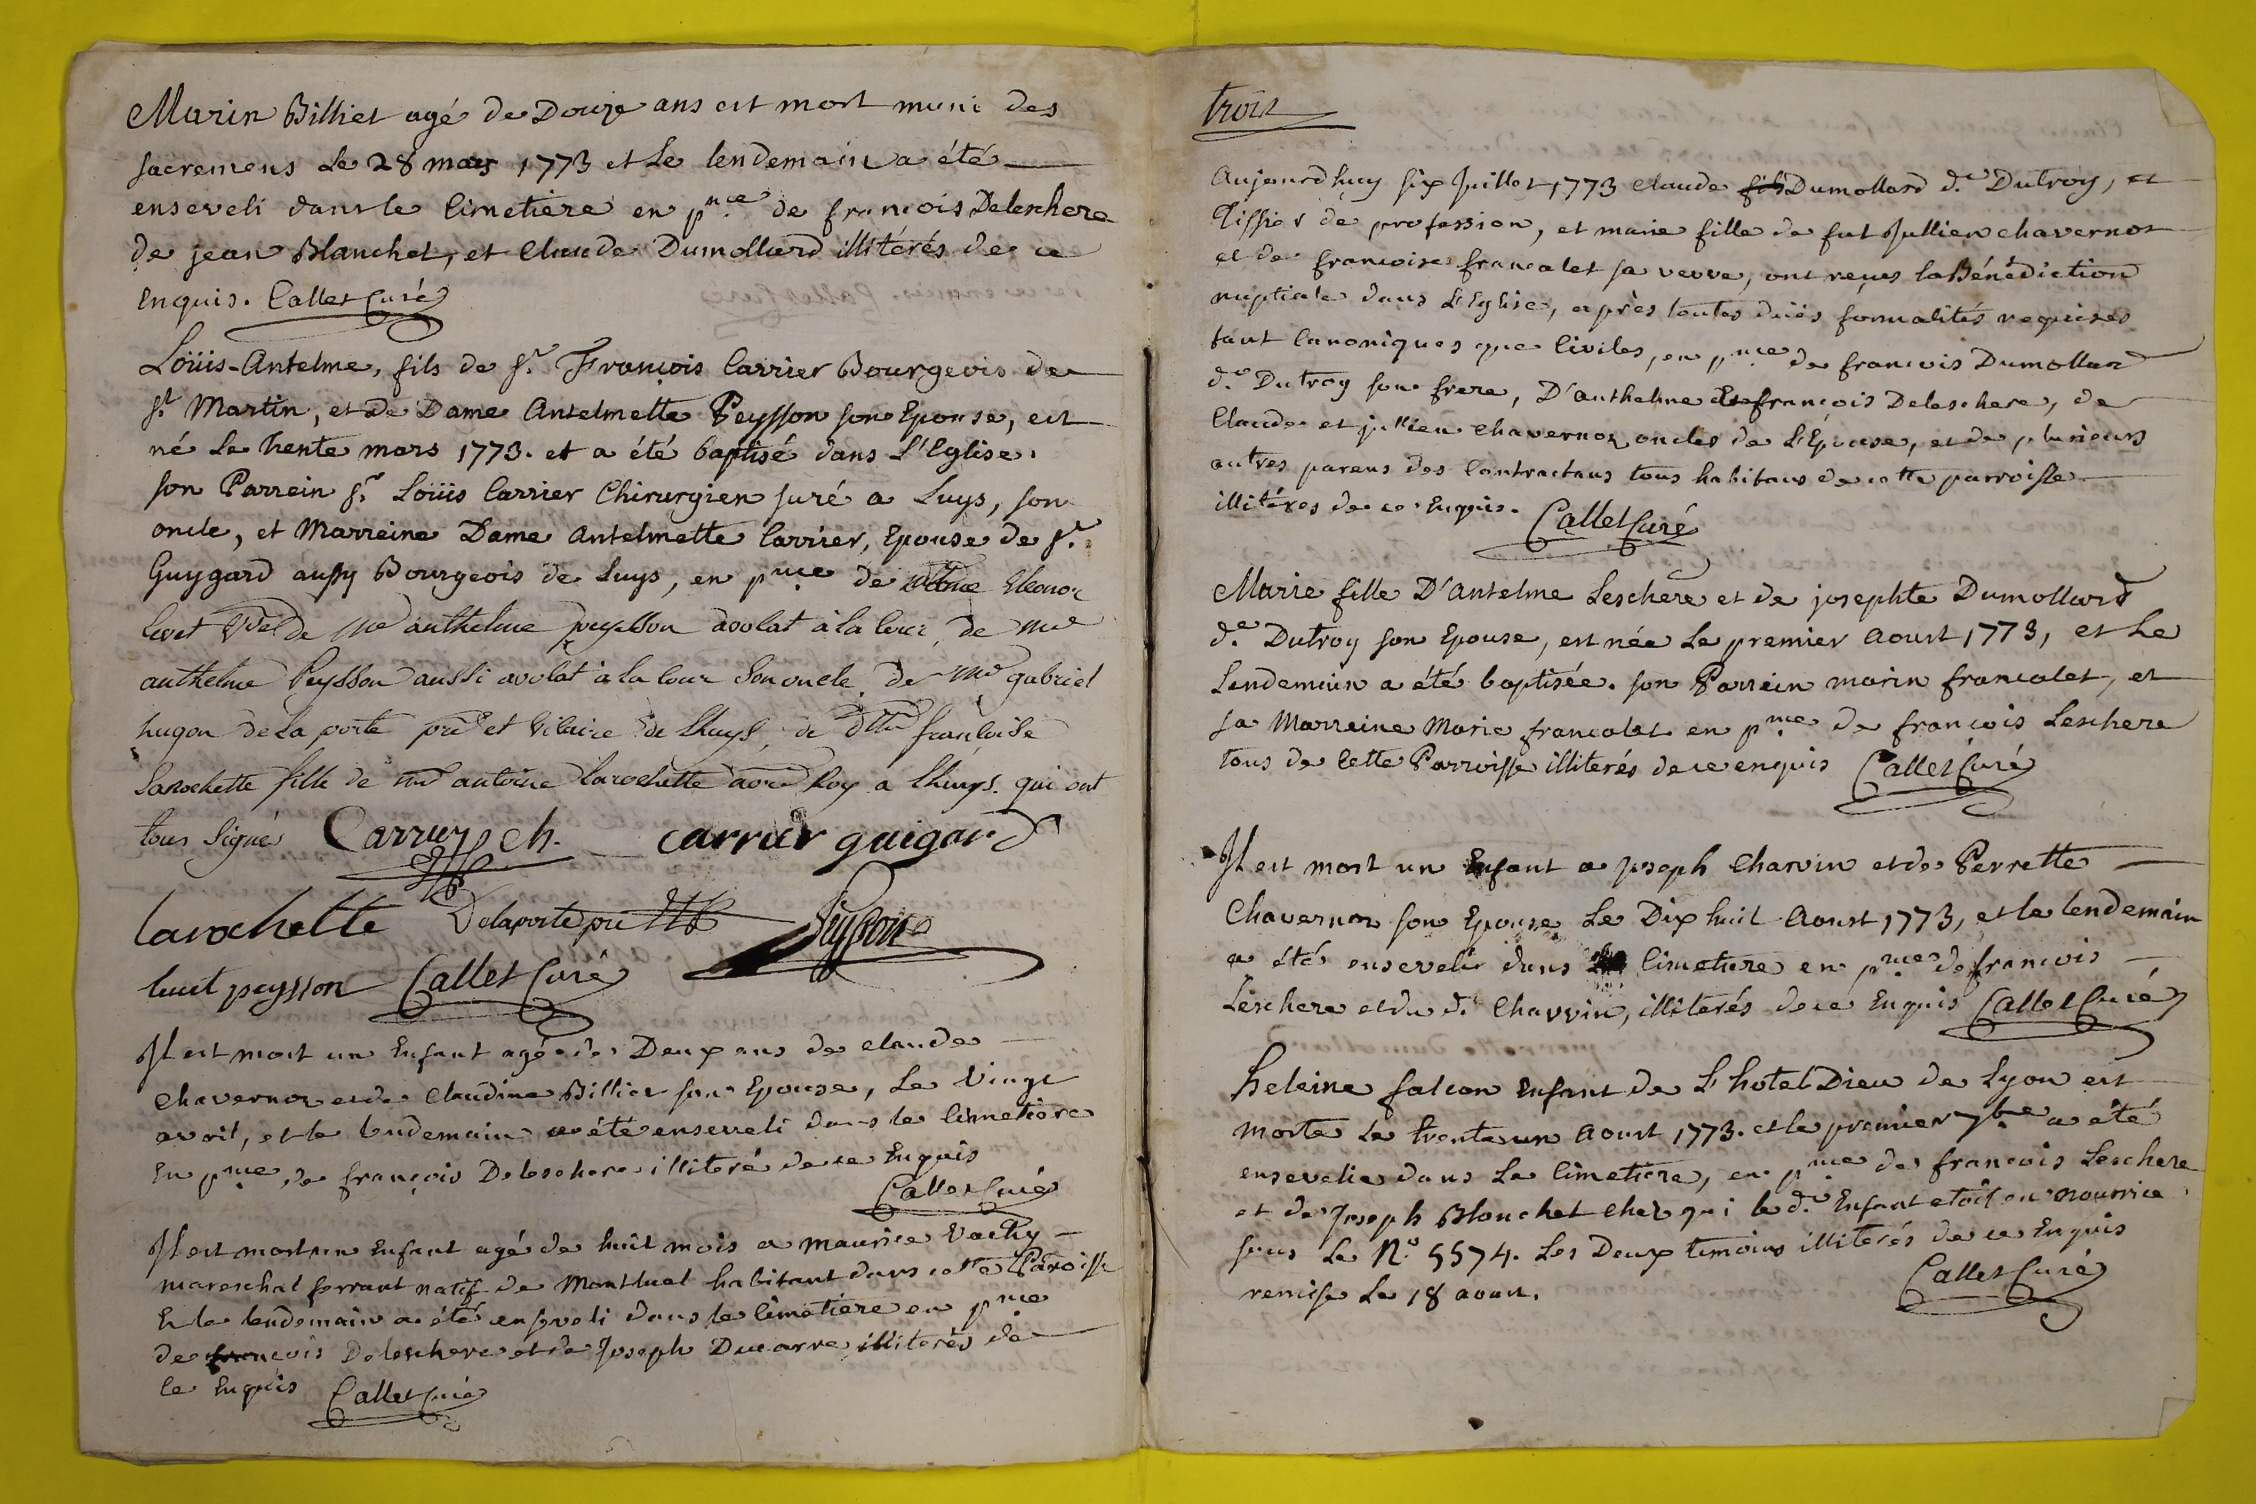 Marin Billiet agé de Douze ans est mort muni des
sacremens Le 28 mars 1773 et Le lendemain a été
enseveli dans le Cimetiere en pnce de françois Deleschere
de jean Blanchet, et Claude Dumollard illitérés de ce
Enquis. Callet Curé
Loüis-Antelme, fils de Sr. François Carrier Bourgeois de
St Martin, et de Dame Antelmette Peysson son Epouse, est
né Le trente mars 1773. et a été baptisé dans L'Eglise.
son Parrein Sr. Loüis Carrier Chirurgien juré a Luys, son
oncle, et Marreine Dame Antelmette Carrier, Epouse de Sr.
Guygard aussy Bourgeois de Luys, en pnce de dame Eleonor
Luet Vve de Me anthelme peysson avocat à la Cour, de Me
anthelme Peysson aussi avocat à la Cour son oncle, de Me gabriel
hugon de La porte pre et vicaire de Lhuys, de dlle françoise
Larochette fille de me antoine Larochette Roy a Lhuys. qui ont
tous signé Carrier ch. carrier guigard
larochette Delaporte pre Peysson
luet peysson Callet Curé
Il est mort un Enfant agé de Deux ans de claude
Chavernoz et de Claudine Billiet son Epouse, Le Vingt
avril, et le lendemain a été enseveli dans le Cimetiere
En pnce de françois Deleschere illiteré de ce Enquis
Callet Curé
Il est mort un Enfant agé de huit mois a maurice Vachy
mareschal ferrant natif de Montluel habitant dans cette Paroisse
Et le lendemain a été enseveli dans le Cimetiere en pnce
de françois Deleschere et de Joseph Ducarre illiterés de
ce Enquis Callet Curé
trois
Aujourdhuy six Juillet 1773 claude fils Dumollard d.t Dutroy, et
Tissier de profession, et marie fille de fut Jullien chavernot
et de francoise francalet sa veuve, ont reçus la Bénédiction
nuptiale dans L'Eglise, après toutes duës formalités requises
tant Canoniques que Civiles, en pnce de francois Dumollard
d.t Dutroy son frere, D'anthelme et françois Deleschere, de
Claude et jullien chavernoz oncles de L'Epouse, et de plusieurs
autres parens des Contractans tous habitans de cette parroisse
illitéres de ce Enquis. Callet Curé
Marie fille D'Antelme Leschere et de josephte Dumollard
d.t Dutroy son Epouse, est née Le premier Aoust 1773, et Le
Lendemain a été baptisée. son Parrein marin francalet, et
sa Marreine Marie francalet en pnce de françois Leschere
tous de Cette Parroisse illiterés de ce enquis Callet Curé
Il est mort un Enfant a joseph Charvin et de Perrette
Chavernoz son Epouse Le Dix huit Aoust 1773, et le lendemain
a été enseveli dans le Cimetiere en pnce de francois
Leschere et du d.t Charvin, illiterés de ce Enquis Callet Curé
heleine falcon Enfant de L'hotel Dieu de Lyon est
morte Le trente un Aoust 1773. et le premier 7bre a été
ensevelie dans Le Cimetiere, en pnce de francois Leschere
et de Joseph Blanchet chez qui le d.t Enfant etoit en nourrice
sous Le N.o 5574. Les Deux temoins illiterés de ce Enquis
remise Le 18 aoust. Callet Curé